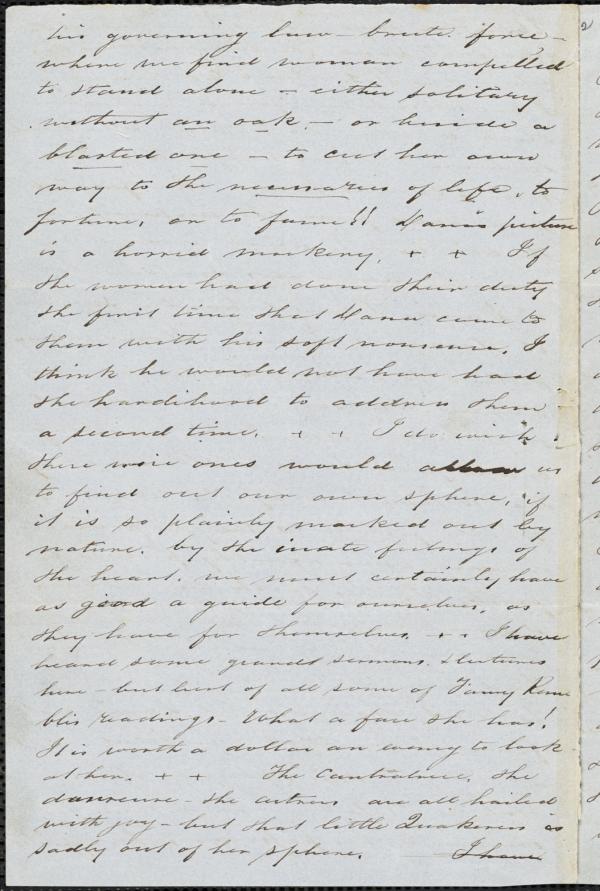 his governing law – brute force –
where we find woman compelled
to stand alone – either solitary
without an oak – or beside a
blasted one – to cut her own
way to the necessaries of life, to
fortune, or to fame!! Dana's picture
is a horrid mockery. + + If
the women had done their duty
the first time that Dana came to
them with his soft nonsense, I
think he would not have had
the hardihood to address them
a second time. + + I do wish
these wise ones would allow us
to find out our own sphere, if
it is so plainly marked out by
nature. by the inate feelings of
the heart. we must certainly have
as good a guide for ourselves, as
they have for themselves. + + I have
heard some grand sermons & lectures
here – but best of all some of Fanny Kem
bles readings – What a face she has!
It is worth a dollar an evening to look
at her. + + The Cantatrice, the
danseuse – the actress are all hailed
with joy – but that little Quakeress is
sadly out of her sphere. I have
2